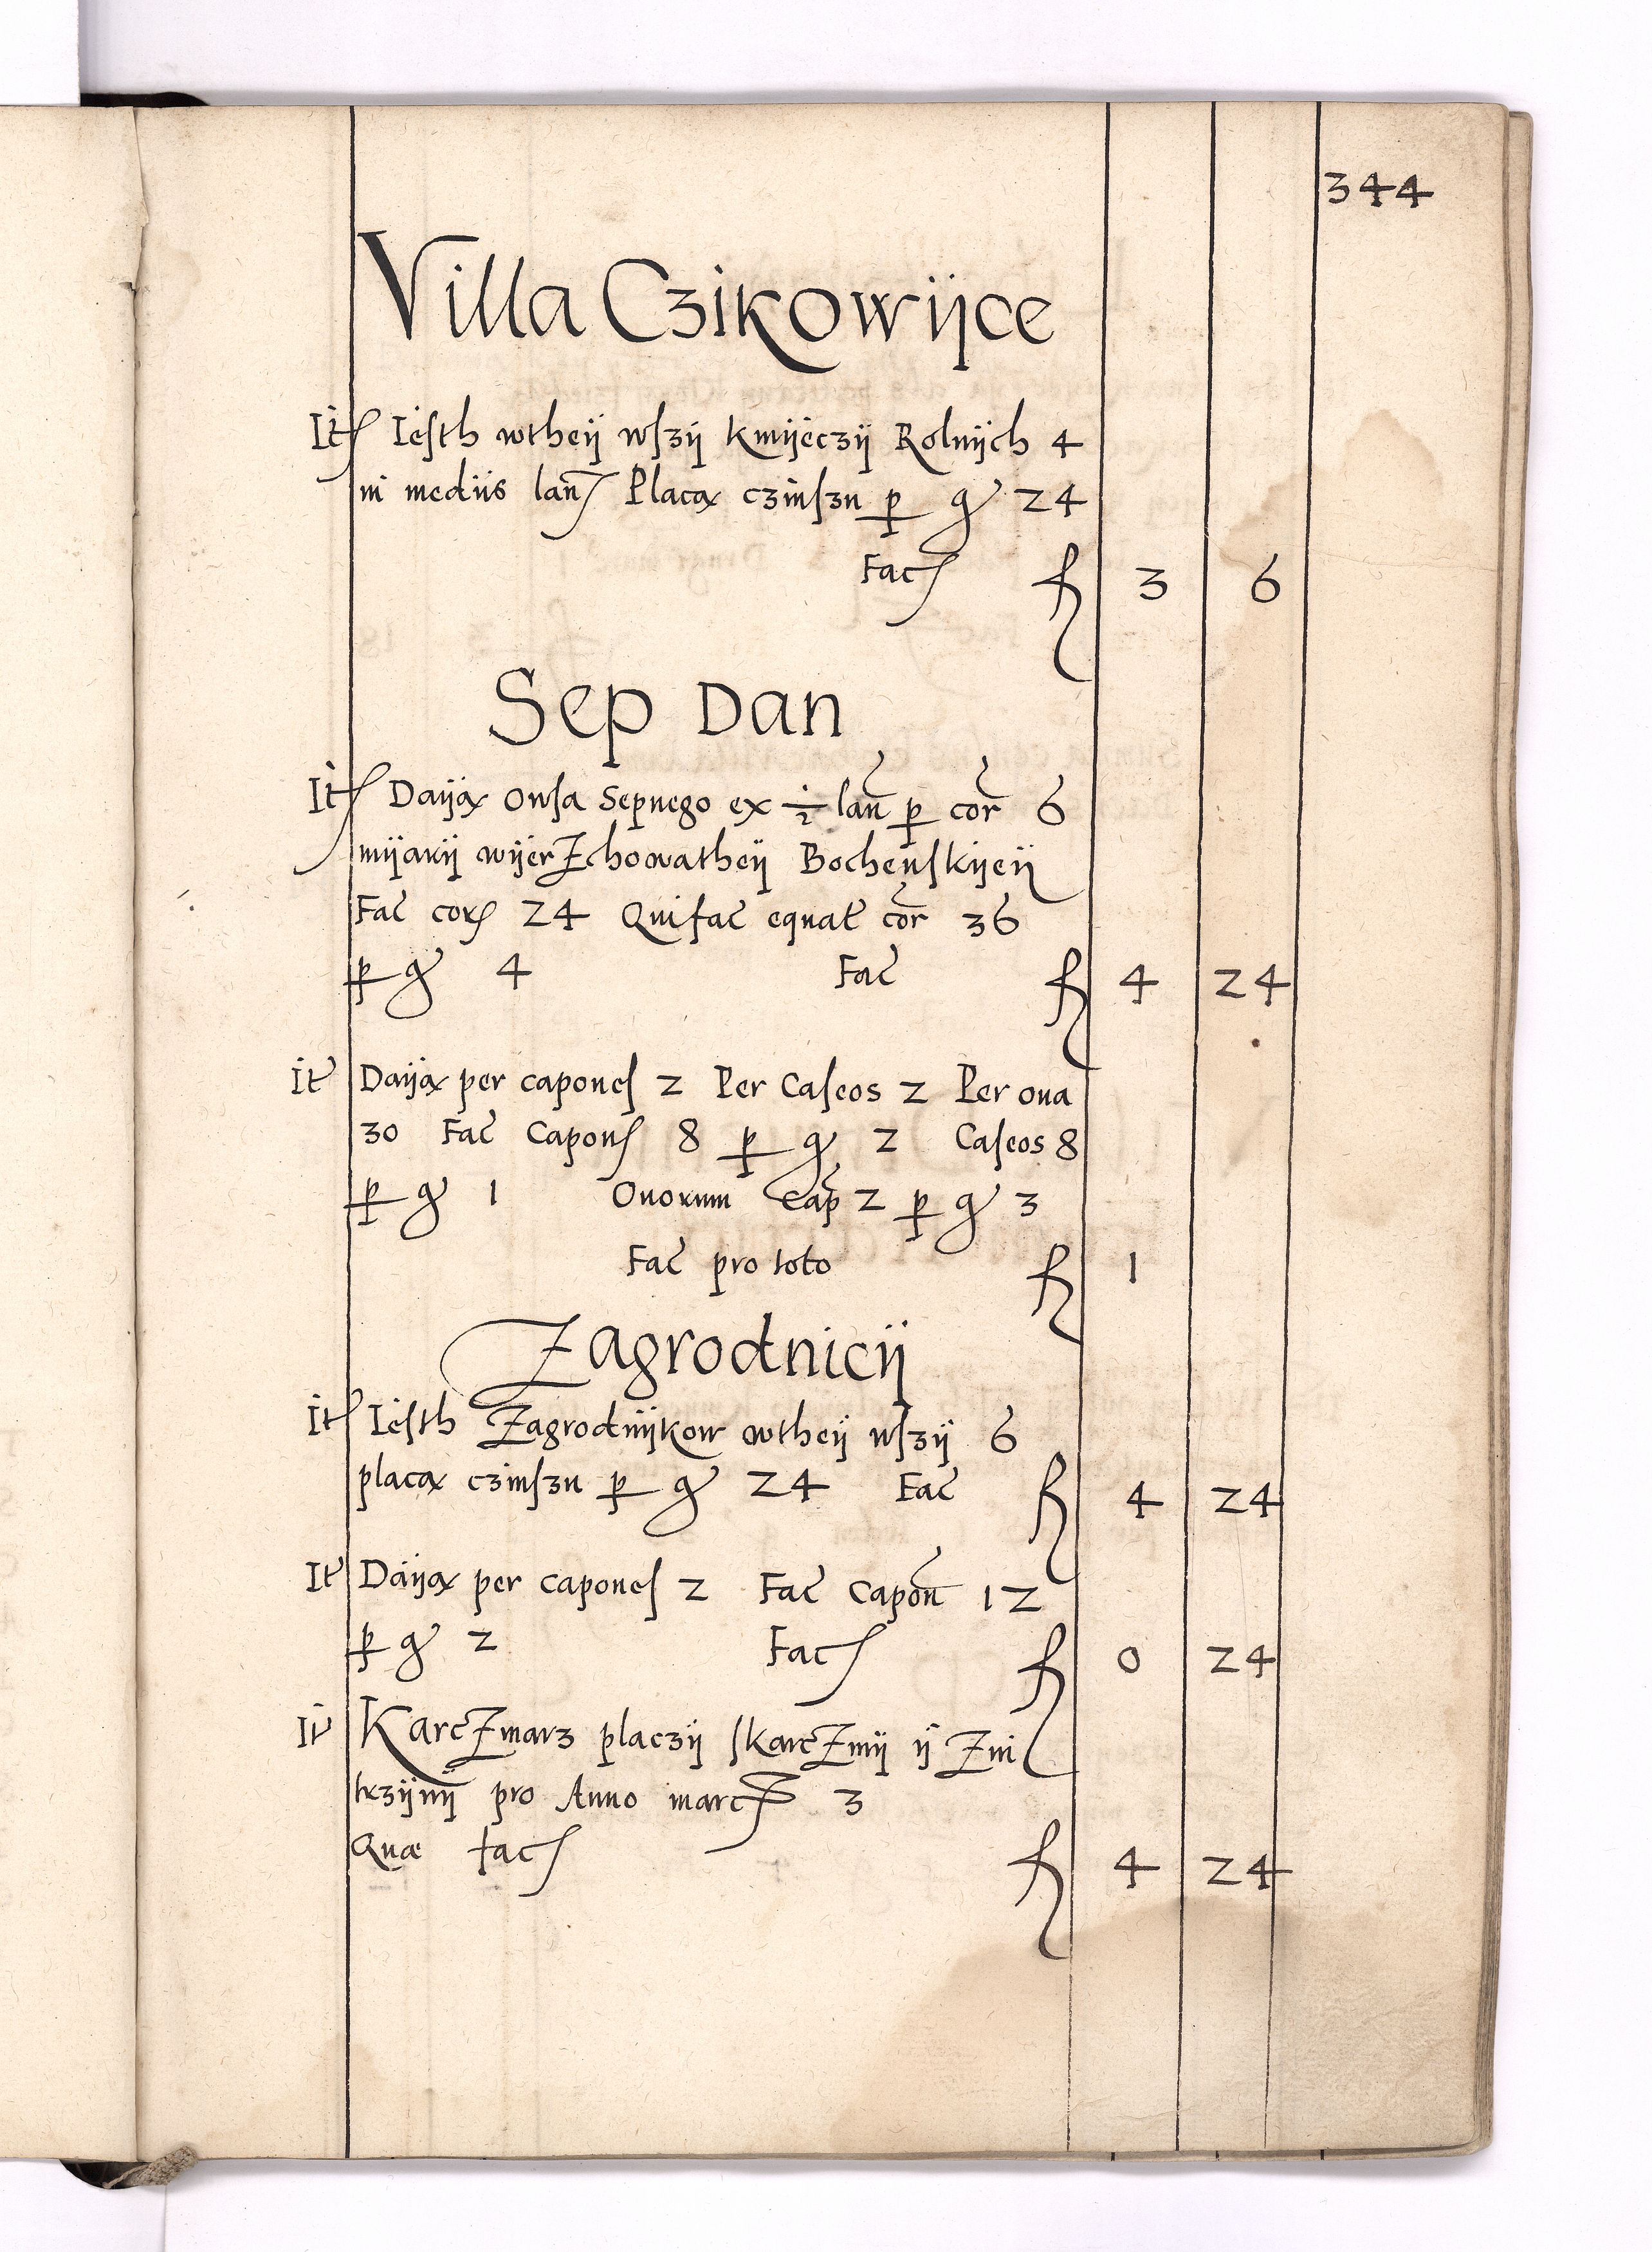 344
Villa Czikowijce
Itē Iesth wtheÿ wszÿ kmijeczÿ Rolnijch 4
in mediis lanʃ Placą czinszu ꝑ gʳ 24
Facʃ fl 3 6
Sep Dan
Itē Daiją Owsa Sepnego ex ½ lan ꝑ cor 6
mijarÿ wijerzchowatheÿ Bochenskijeÿ
Fac corʃ 24 Qui fac equat cor 36
ꝑ gʳ 4 Fac fl 4 24
It Daiją per caponeſ 2 Per Caſeos 2 Per oua
30 Fac Caponʃ 8 ꝑ gʳ 2 Caſeos 8
ꝑ gʳ 1 Ouorum Cap 2 ꝑ gʳ 3
Fac pro toto fl 1
Zagrodnicÿ
Itē Iesth Zagrodnijkow wtheÿ wszÿ 6
placą czinszu ꝑ gʳ 24 Fac fl 4 24
It Daiją per caponeſ 2 Fac Capon 12
ꝑ gʳ 2 Facʃ fl 0 24
It Karczmarz placzÿ skarczmÿ ÿ Zwi
trzijnÿ pro Anno marcʃ 3
Quæ facʃ fl 4 24